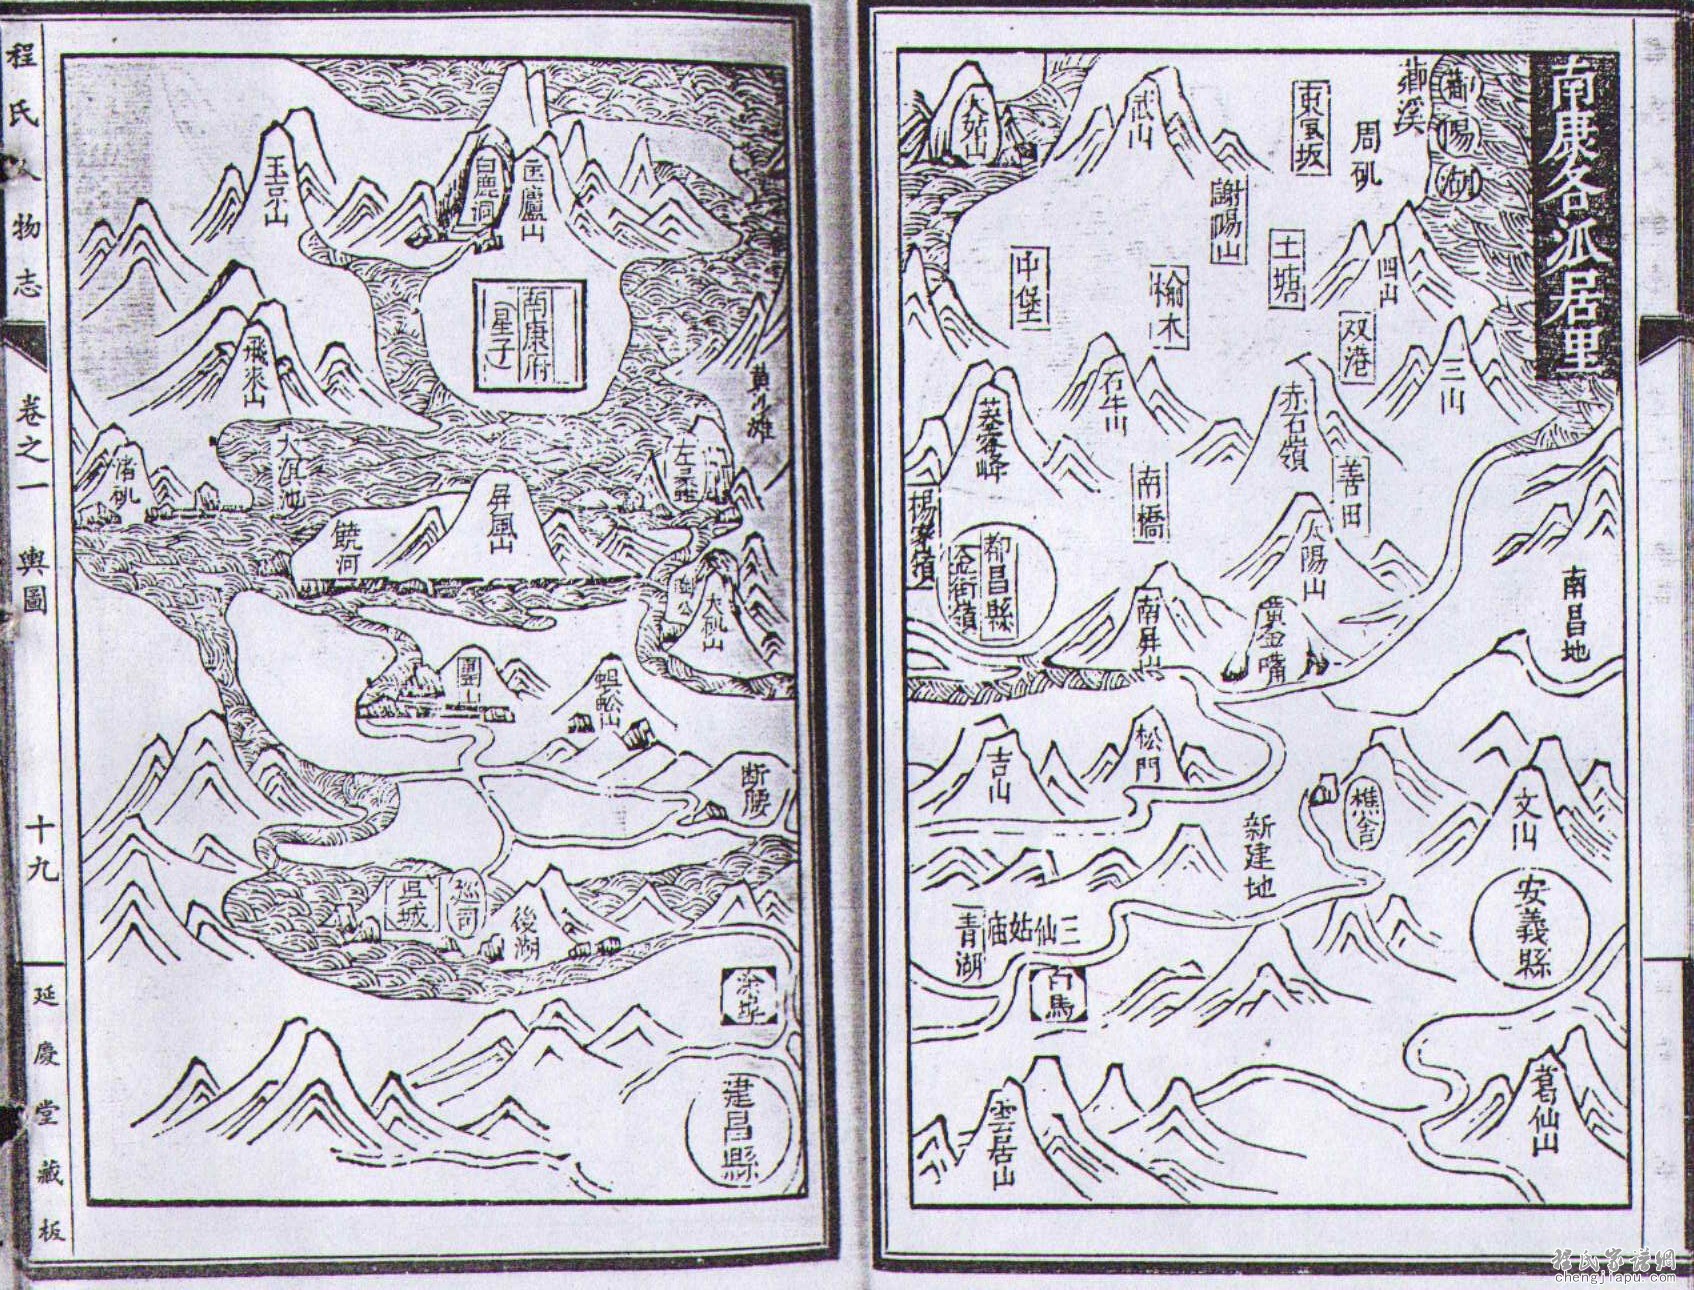 南康各派居里
鄱陽湖
薌溪
周矶
東風坂
武山
大姑山
謝陽山
土塘
四山
中堡
榆木
双港
三山
石牛山
赤石嶺
芙蓉峰
南橋
善田
太陽山
楊家嶺
都昌縣
金街嶺
南屏山
黃金嘴
南昌地
吉山
松門
樵舍
文山
新建地
安義縣
三仙姑庙
青湖
石馬
雲居山
葛仙山
匡廬山
白鹿洞
玉京山
南康府
星子
飛來山
黄
灘
渚矶
大沮池
左蠡
饒河
屏風山
大矶山
蜈蚣山
断腰
吳城
巡司
後湖
涂埠
建昌縣
程氏人物志
卷之一 輿圖
十九
延慶堂藏板
程氏家譜網
chengjiapu.com